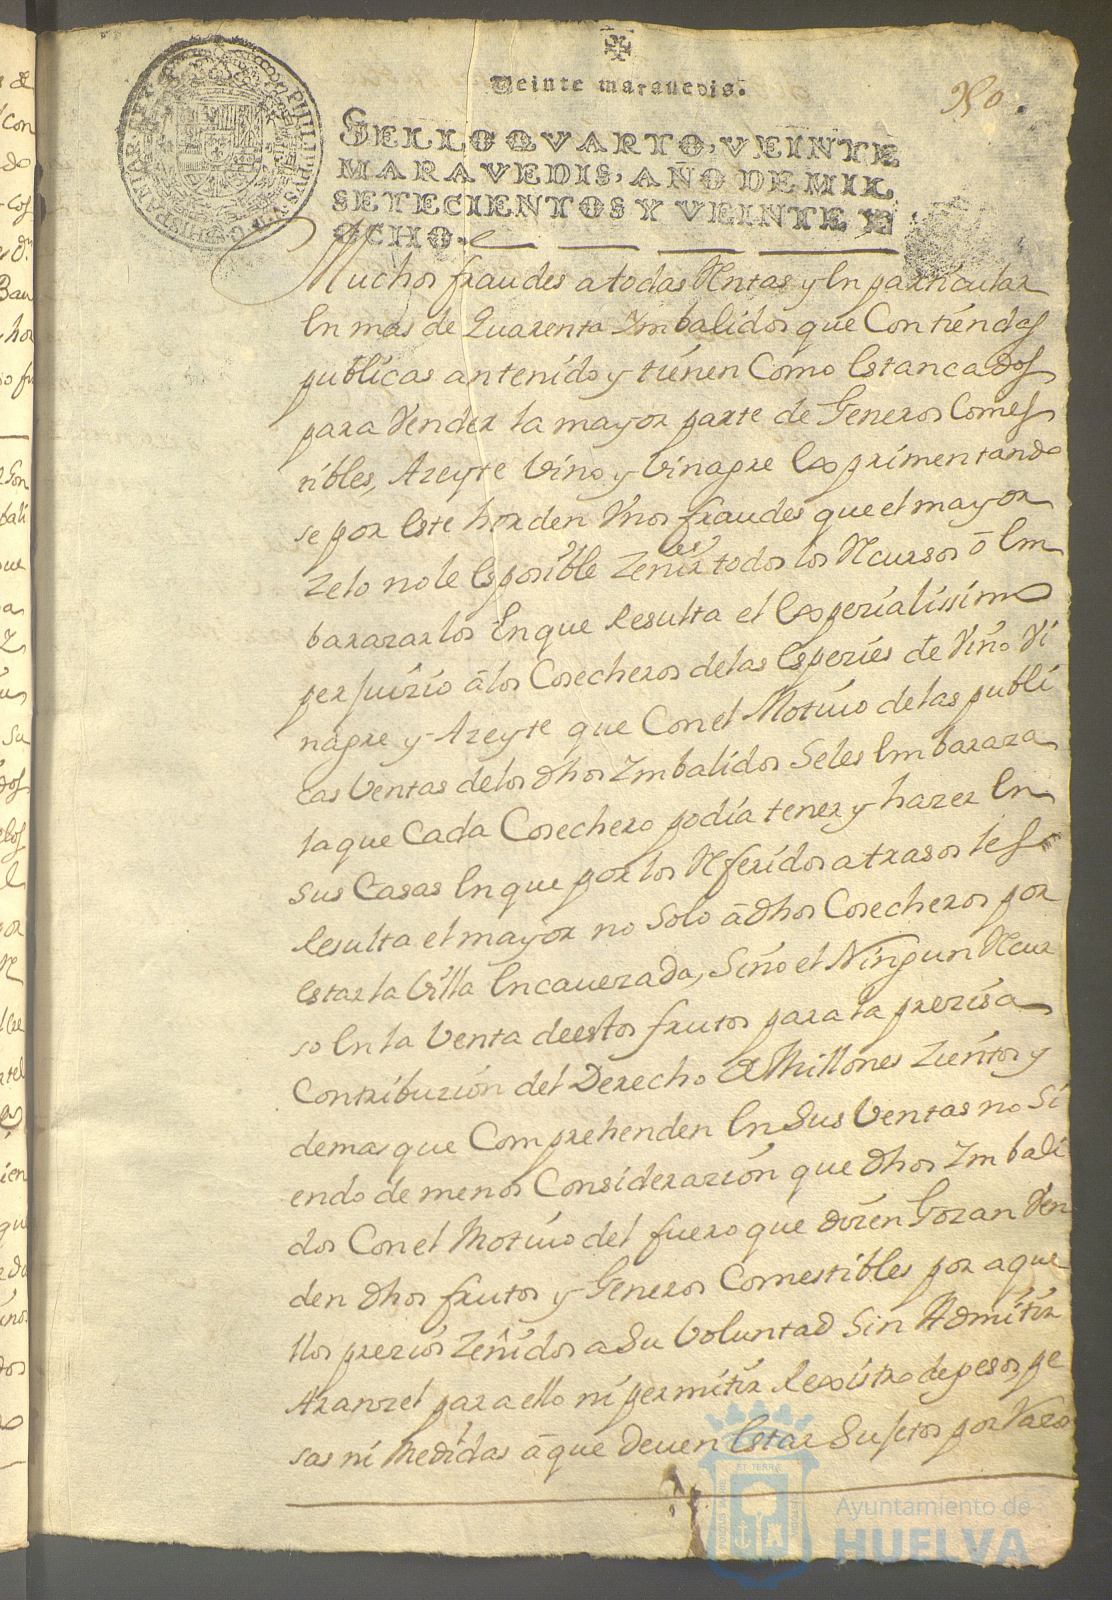 Veinte marauedis.
250
SELLO QVARTO, VEINTE
MARAVEDIS, AÑO DE MIL
SETECIENTOS Y VEINTE Y
OCHO.
Muchos fraudes a todas Rentas y En particular
En mas de Quarenta Ymbalidos que Con tiendas
publicas an tenido y tienen Como Estancados
para Vender la mayor parte de Generos Comes
tibles, Azeyte Vino y Vinagre Exprimentando
se por Este horden Vnos fraudes que el mayor
Zelo no le Es posible Zeñir todos los Recursos ō Em
barazarlos En que Resulta el Expezialissimo
perjuizio ā los Cosecheros de las Espezies de Vino Vi
nagre y Azeyte que Con el Motiuo de las publi
cas Ventas de los dhos Ymbalidos Seles Embaraza
la que Cada Cosechero podia tener y hazer En
sus Casas En que por los Referidos atrasos les
Resulta el mayor no Solo ā dhos Cosecheros por
estar la Villa Encauezada, Sino el Ningun Recur
so En la Venta de estos frutos para la prezisa
Contribuzion del Derecho de Millones Zientos y
demas que Comprehenden En Sus Ventas no Si
endo de menos Considerazion que dhos Ymbali
dos Con el Motiuo del fuero que dizen Gozan Ven
den dhos frutos y Generos Comestibles por aque
llos prezios Zeñidos a Su Voluntad Sin Admitir
Aranzel para ello ni permitir Rexistro de pesos, pe
sas ni Medidas ā que Deuen Estar Sujetos por
ET TERRE
Ayuntamiento de
HUELVA